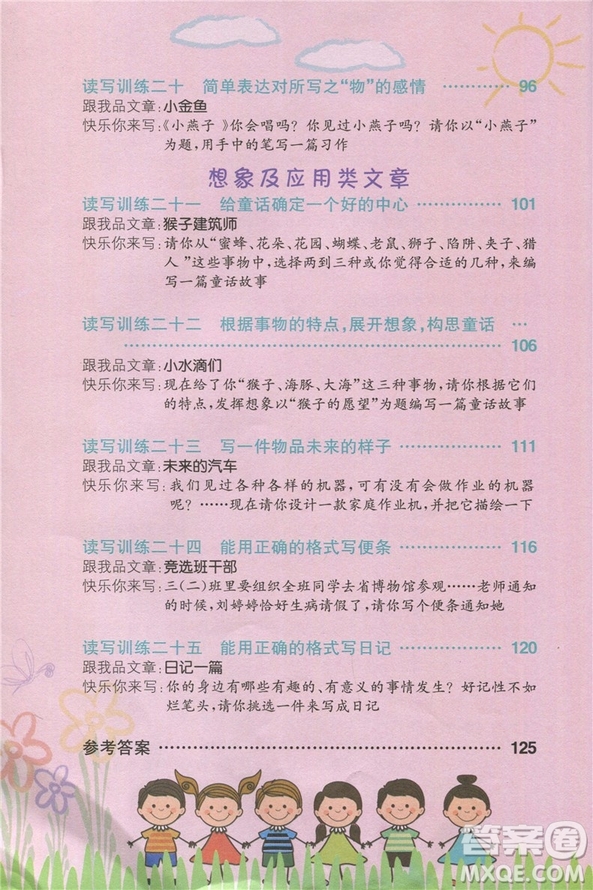 读写训练二十 简单表达对所写之“物”的感情 ………… 96
跟我品文章:小金鱼
快乐你来写:《小燕子》你会唱吗?你见过小燕子吗?请你以“小燕子”
为题,用手中的笔写一篇习作
想象及应用类文章
读写训练二十一 给童话确定一个好的中心………………… 101
跟我品文章:猴子建筑师
快乐你来写:请你从“蜜蜂、花朵、花园、蝴蝶、老鼠、狮子、陷阱、夹子、猎
人”这些事物中,选择两到三种或你觉得合适的几种,来编
写一篇童话故事
读写训练二十二 根据事物的特点,展开想象,构思童话 …
……………………………………………………………… 106
跟我品文章:小水滴们
快乐你来写:现在给了你“猴子、海豚、大海”这三种事物,请你根据它们
的特点,发挥想象以“猴子的愿望”为题编写一篇童话故事
读写训练二十三 写一件物品未来的样子 ………………… 111
跟我品文章:未来的汽车
快乐你来写:我们见过各种各样的机器,可有没有会做作业的机器
呢?……现在请你设计一款家庭作业机,并把它描绘一下
读写训练二十四 能用正确的格式写便条 ………………… 116
跟我品文章:竞选班干部
快乐你来写:三(二)班里要组织全班同学去省博物馆参观……老师通知
的时候,刘婷婷恰好生病请假了,请你写个便条通知她
读写训练二十五 能用正确的格式写日记 ………………… 120
跟我品文章:日记一篇
快乐你来写:你的身边有哪些有趣的、有意义的事情发生?好记性不如
烂笔头,请你挑选一件来写成日记
参考答案 ……………………………………………………… 125
答案圈
MXQE.COM